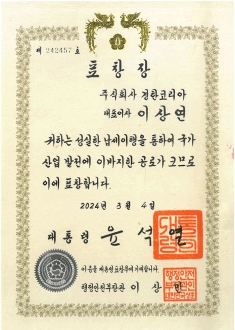 제 242457 호
표 창 장
주식회사 경한코리아
대표이사 이 상 연
귀하는 성실한 납세이행을 통하여 국가
산업 발전에 이바지한 공로가 크므로
이에 표창합니다.
2024년 3월 4일
대 통 령 윤 석 열
이 증을 대통령 표창부에 기재합니다.
행정안전부장관 이 상 민